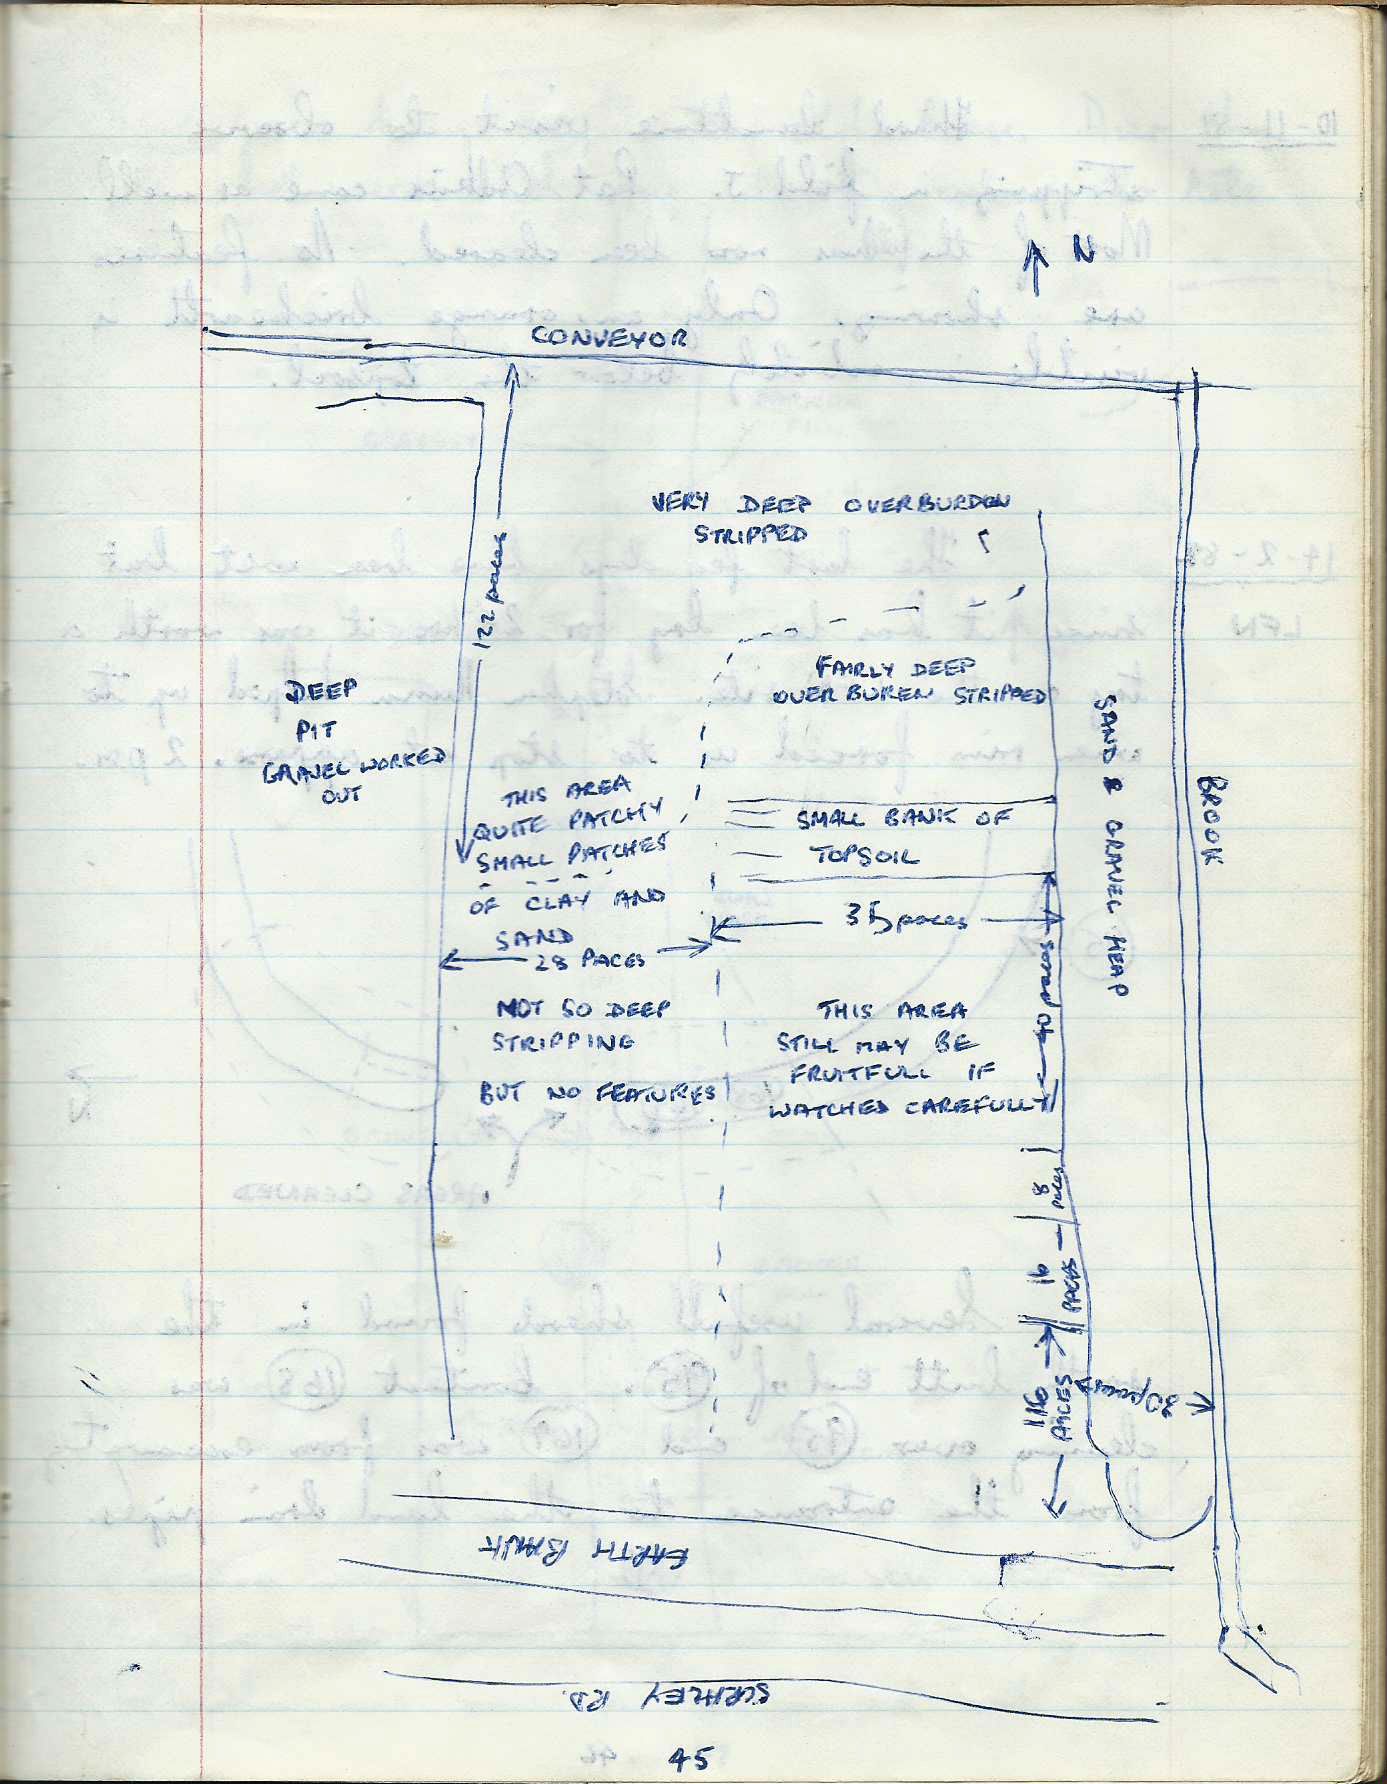 N
CONVEYOR
VERY DEEP OVERBURDEN
STRIPPED
122 paces
FAIRLY DEEP
OVERBUREN STRIPPED
DEEP
PIT
GRAVEL WORKED
OUT
THIS AREA
QUITE PATCHY
SMALL PATCHES
OF CLAY AND
SAND
SMALL BANK OF
TOPSOIL
SAND & GRAVEL HEAP
BROOK
35 paces
28 PACES
40 paces
NOT SO DEEP
STRIPPING
BUT NO FEATURES
THIS AREA
STILL MAY BE
FRUITFULL IF
WATCHED CAREFULLY
8
paces
16
PACES
PACES
30 paces
EARTH BANK
RD.
45